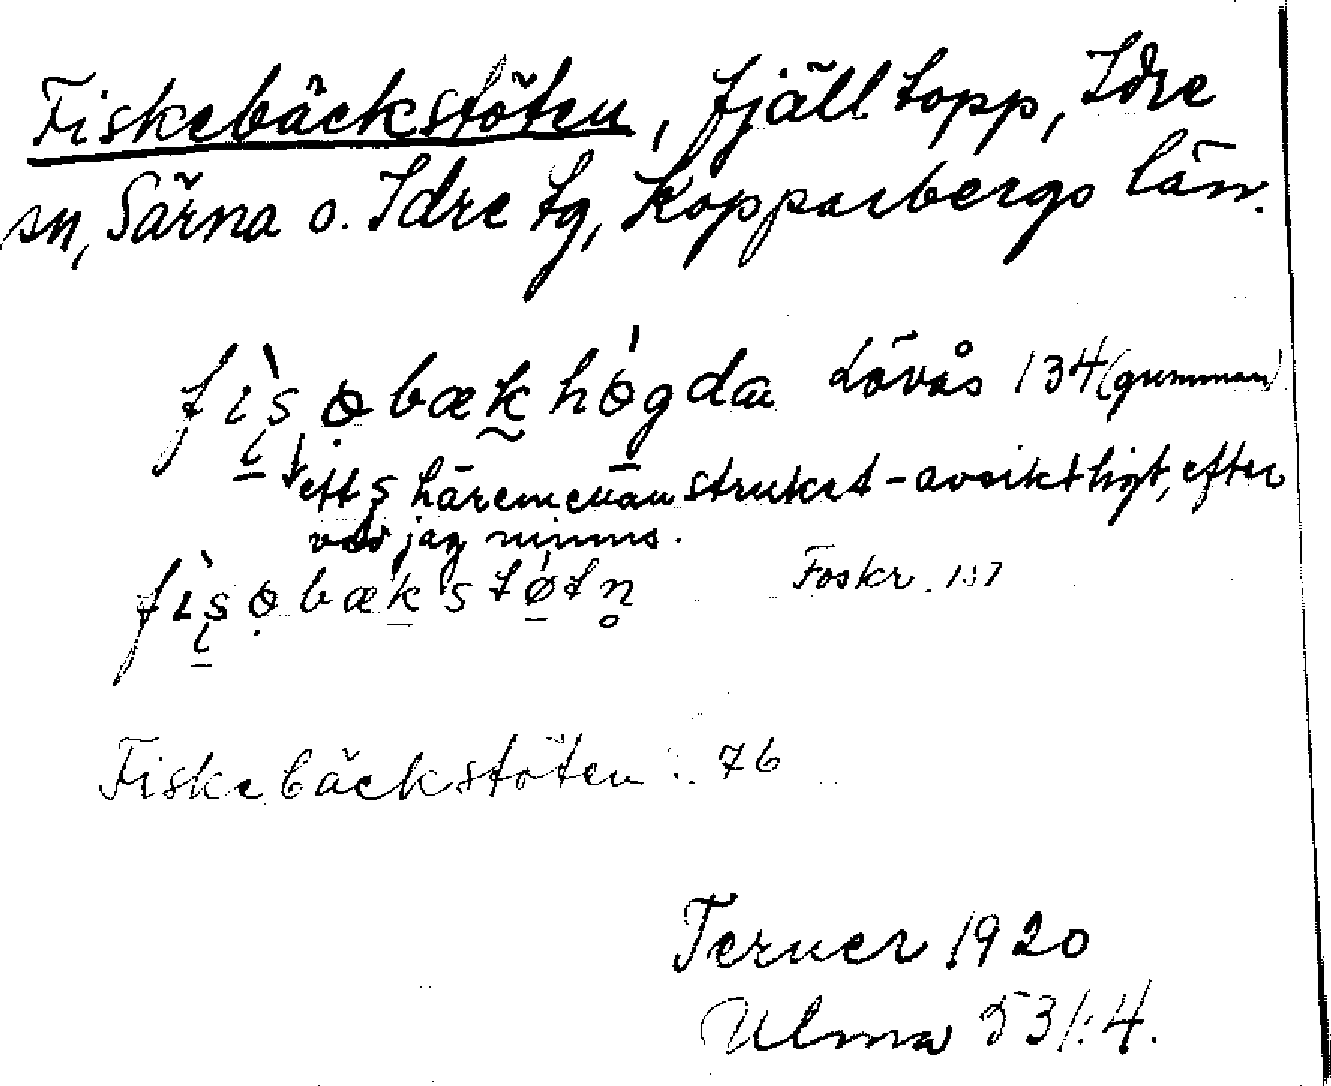 Fiskebäckstöten, fjälltopp, Idre
sn, Särna o. Idre tg, Kopparbergs län.
fìsøbækhǿgdæ Lövås 134 (gumman)
ett s häremellan struket - avsiktligt, efter
vad jag minns.
fìsøbækstǿtn̥ Foskr. 137
Fiskebäckstöten : 76
Terner 1920
Ulma 531:4.